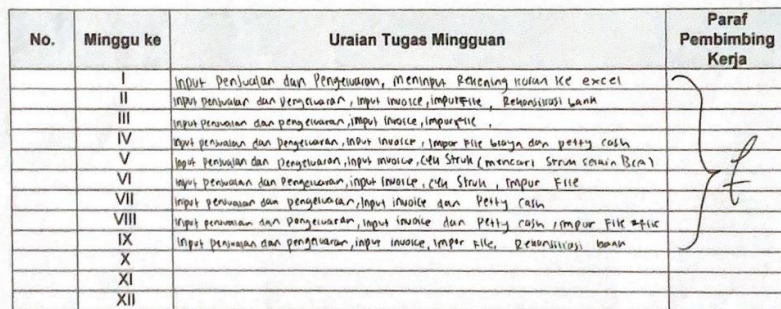 No. Minggu ke Uraian Tugas Mingguan Paraf Pembimbing Kerja
I Input Penjualan dan Pengeluaran, Menginput Rekening Koran Ke excel
II Input penjualan dan Pengeluaran, input invoice, imporfile, Rekonsiliasi bank
III Input penjualan dan pengeluaran, input invoice, imporfile,
IV Input penjualan dan pengeluaran, input invoice, impor file biaya dan petty cash
V Input penjualan dan Pengeluaran, input invoice, cek Struk (mencari Struk selain BCA)
VI Input penjualan dan Pengeluaran, input invoice, cek Struk, impor File
VII Input penjualan dan pengeluaran, Input invoice dan Petty cash
VIII Input penjualan dan pengeluaran, input invoice dan Petty cash, impor File
IX Input penjualan dan pengeluaran, input invoice, impor file, Rekonsiliasi bank
X
XI
XII